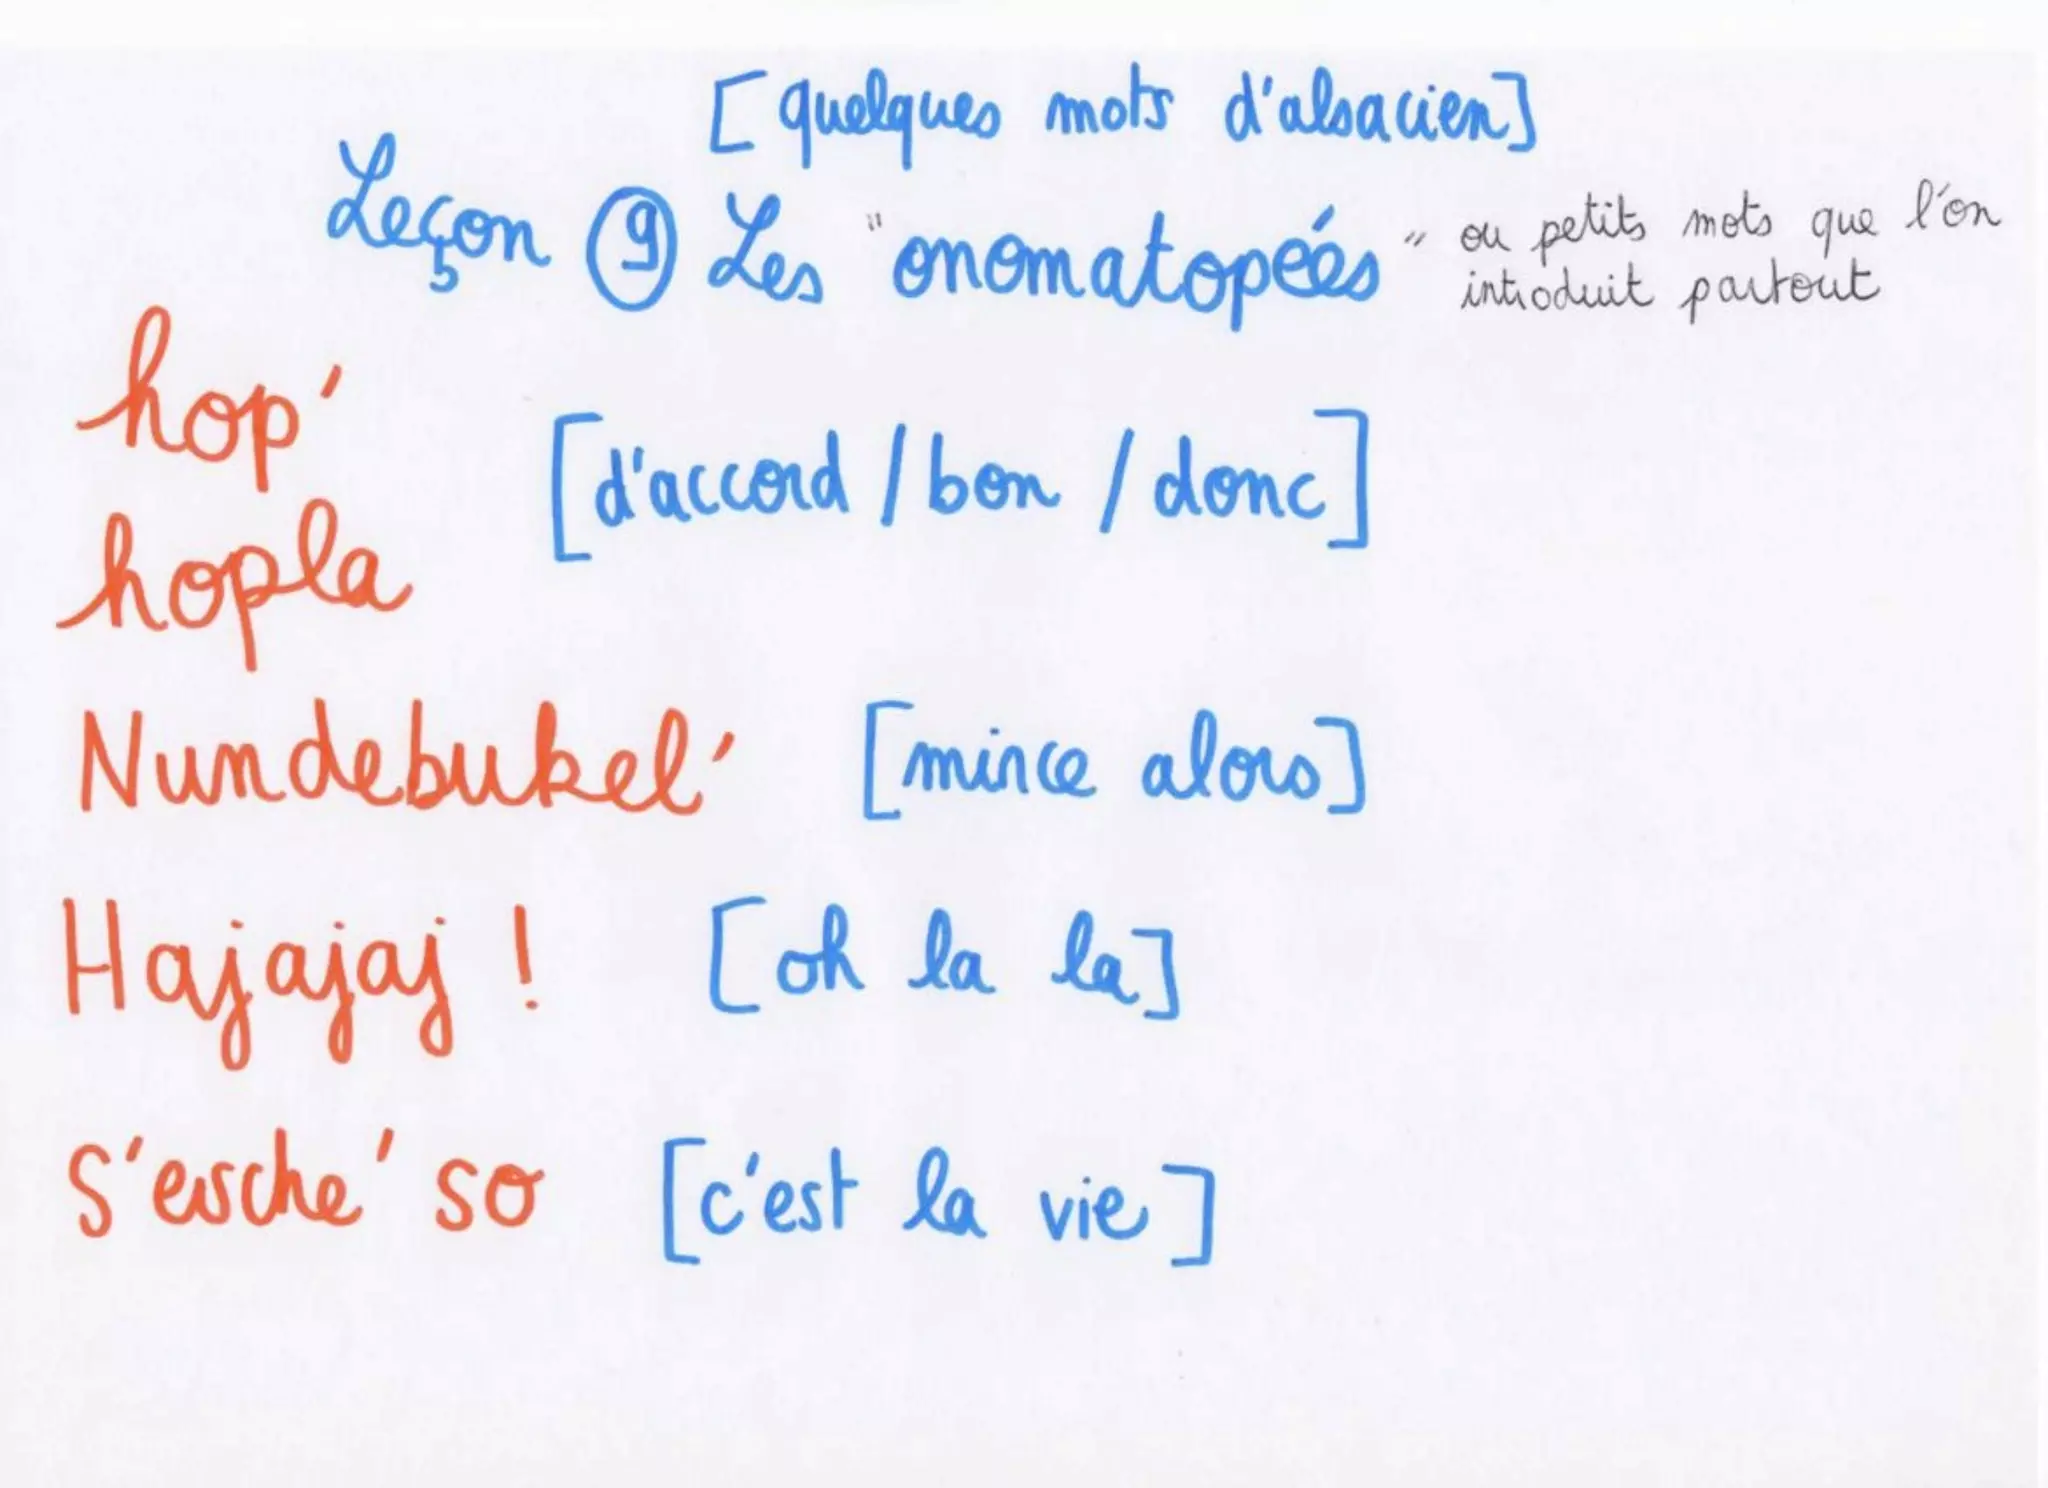 [quelques mots d'alsacien]
Leçon 9 Les "onomatopéés" ou petits mots que l'on
introduit partout
hop'
[d'accord / bon / donc]
hopla
Nundebukel' [mince alors]
Hajajaj ! [oh la la]
S'esche' so [c'est la vie]